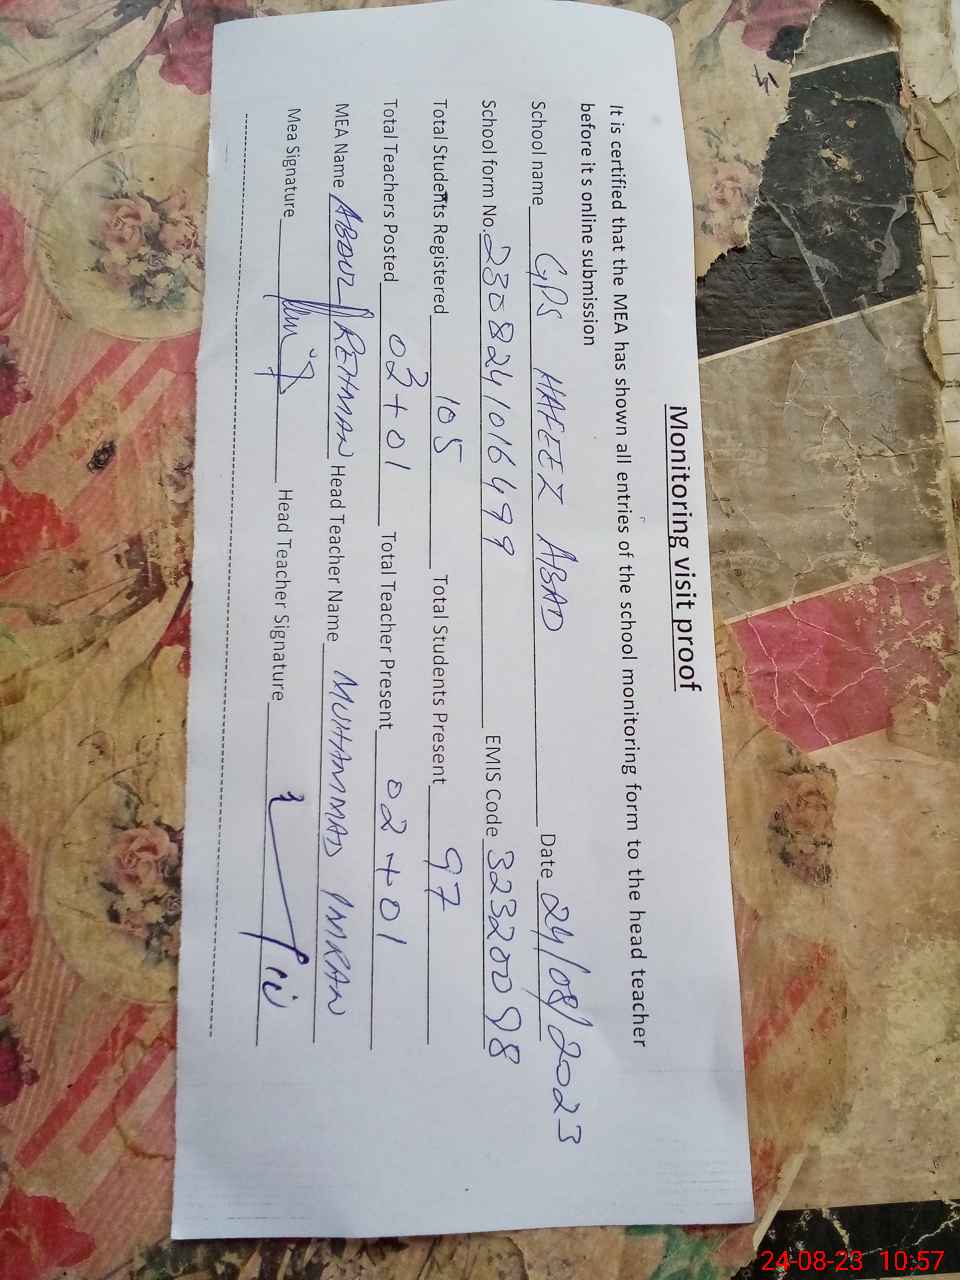 Monitoring visit proof
It is certified that the MEA has shown all entries of the school monitoring form to the head teacher
before it s online submission
School name GPS HAFEEZ ABAD Date 24/08/2023
School form No. 2308241016499 EMIS Code 32320098
Total Students Registered 105 Total Students Present 97
Total Teachers Posted 02+01 Total Teacher Present 02+01
MEA Name ABDUL REHMAN Head Teacher Name MUHAMMAD IMRAN
Mea Signature Head Teacher Signature
24-08-23 10:57